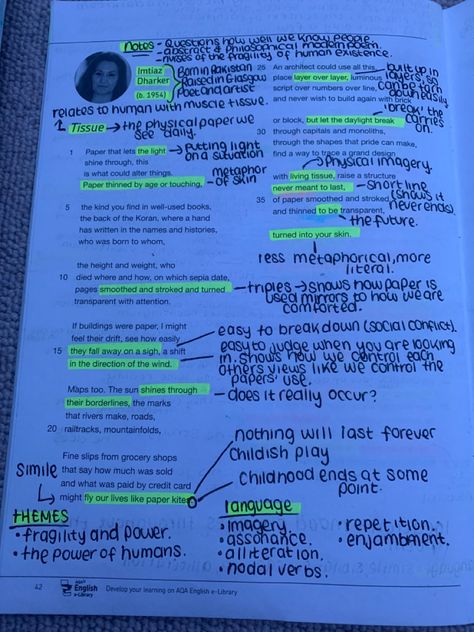 Notes - Questions how well we know people.
- abstract & philosophical modern poem
- nurses of the fragility of human existence.
Imtiaz
Dharker
(b. 1954)
Born in Pakistan
Raised in Glasgow
Poet and artist
relates to human with muscle tissue.
1 Tissue → the physical paper we
see daily.
1 Paper that lets the light
shine through, this
is what could alter things.
Paper thinned by age or touching,
→ Putting light
on a situation
metaphor
of skin
5 the kind you find in well-used books,
the back of the Koran, where a hand
has written in the names and histories,
who was born to whom,
the height and weight, who
10 died where and how, on which sepia date,
pages smoothed and stroked and turned
transparent with attention.
→ triples → shows how paper is
used mirrors to how we are
comforted.
If buildings were paper, I might
feel their drift, see how easily
15 they fall away on a sigh, a shift
in the direction of the wind.
easy to break down (social conflict).
easy to judge when you are looking
in. shows how we control each
others views like we control the
papers' use.
Maps too. The sun shines through
their borderlines, the marks
that rivers make, roads,
20 railtracks, mountainfolds,
- does it really occur?
Fine slips from grocery shops
that say how much was sold
and what was paid by credit card
might fly our lives like paper kites.
Simile
nothing will last forever
Childish play
Childhood ends at some
point.
25 An architect could use all this,
place layer over layer, luminous
script over numbers over line,
and never wish to build again with brick
built up in
layers, so
can be torn
down easily
30 or block, but let the daylight break
through capitals and monoliths,
through the shapes that pride can make,
find a way to trace a grand design
'break' the
carries
on.
→ Physical imagery.
with living tissue, raise a structure
never meant to last,
35 of paper smoothed and stroked
and thinned to be transparent,
- short line
(shows it
never ends).
the future.
turned into your skin.
less metaphorical, more
literal.
THEMES
• fragility and power.
• the power of humans.
language
• imagery
• assonance.
• alliteration.
• modal verbs.
• repetition.
• enjambment.
42
AQA
English
e-Library
Develop your learning on AQA English e-Library